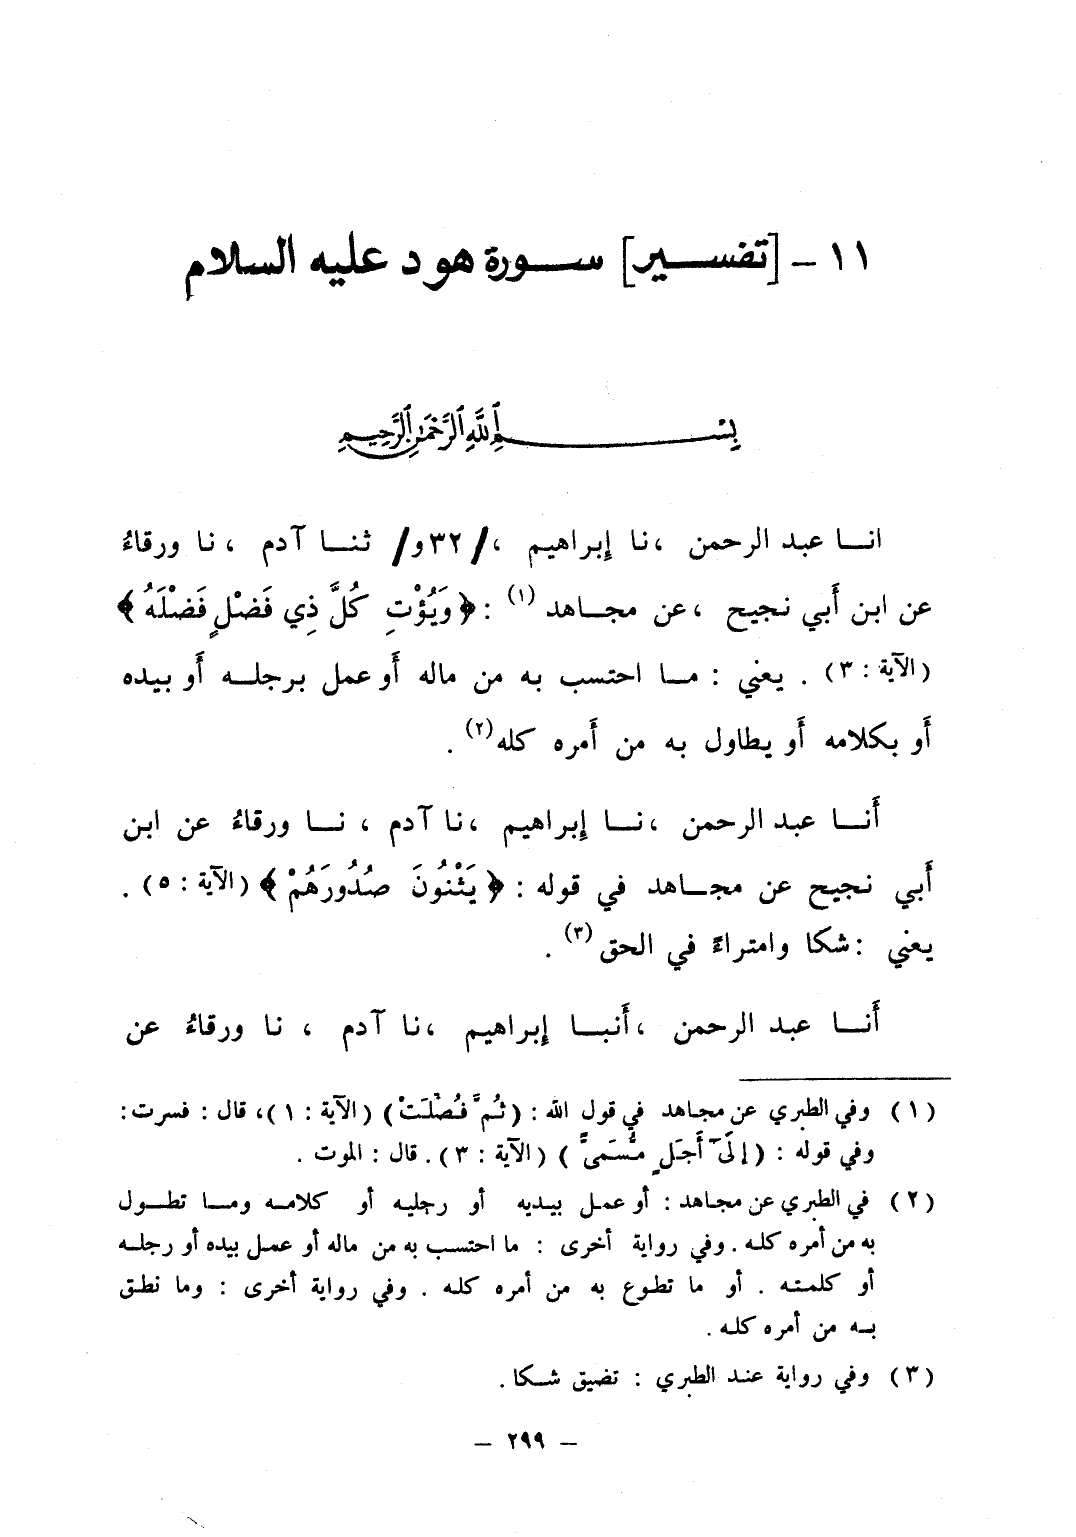 ١١ ـ [تفسير] سورة هود عليه السلام
بِسْمِ اللَّهِ الرَّحْمَنِ الرَّحِيمِ
انا عبد الرحمن ، نا إبراهيم ، /٣٢و/ ثنا آدم ، نا ورقاءُ
عن ابن أَبي نجيح ، عن مجاهد (١) : ﴿ وَيُؤْتِ كُلَّ ذِي فَضْلٍ فَضْلَهُ ﴾
(الآية : ٣) . يعني : ما احتسب به من ماله أَو عمل برجله أَو بيده
أَو بكلامه أَو يطاول به من أَمره كله (٢) .
أَنا عبد الرحمن ، نا إبراهيم ، نا آدم ، نا ورقاءُ عن ابن
أَبي نجيح عن مجاهد في قوله : ﴿ يَثْنُونَ صُدُورَهُمْ ﴾ (الآية : ٥) .
يعني : شكا وامتراءً في الحق (٣) .
أَنا عبد الرحمن ، أَنبا إبراهيم ، نا آدم ، نا ورقاءُ عن
(١) وفي الطبري عن مجاهد في قول الله : (ثُمَّ فُصِّلَتْ) (الآية : ١)، قال : فسرت :
وفي قوله : (إِلَىٰٓ أَجَلٍ مُّسَمىًّ) (الآية : ٣) . قال : الموت .
(٢) في الطبري عن مجاهد : أو عمل بيديه أو رجليه أو كلامه وما تطول
به من أمره كله . وفي رواية أخرى : ما احتسب به من ماله أو عمل بيده أو رجله
أو كلمته . أو ما تطوع به من أمره كله . وفي رواية أخرى : وما نطق
به من أمره كله .
(٣) وفي رواية عند الطبري : تضيق شكا .
ـ ٢٩٩ ـ